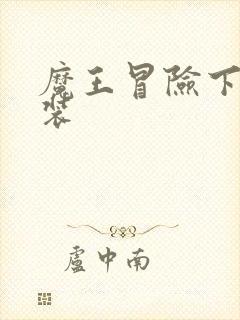 魔王冒險下
裝
盧中南